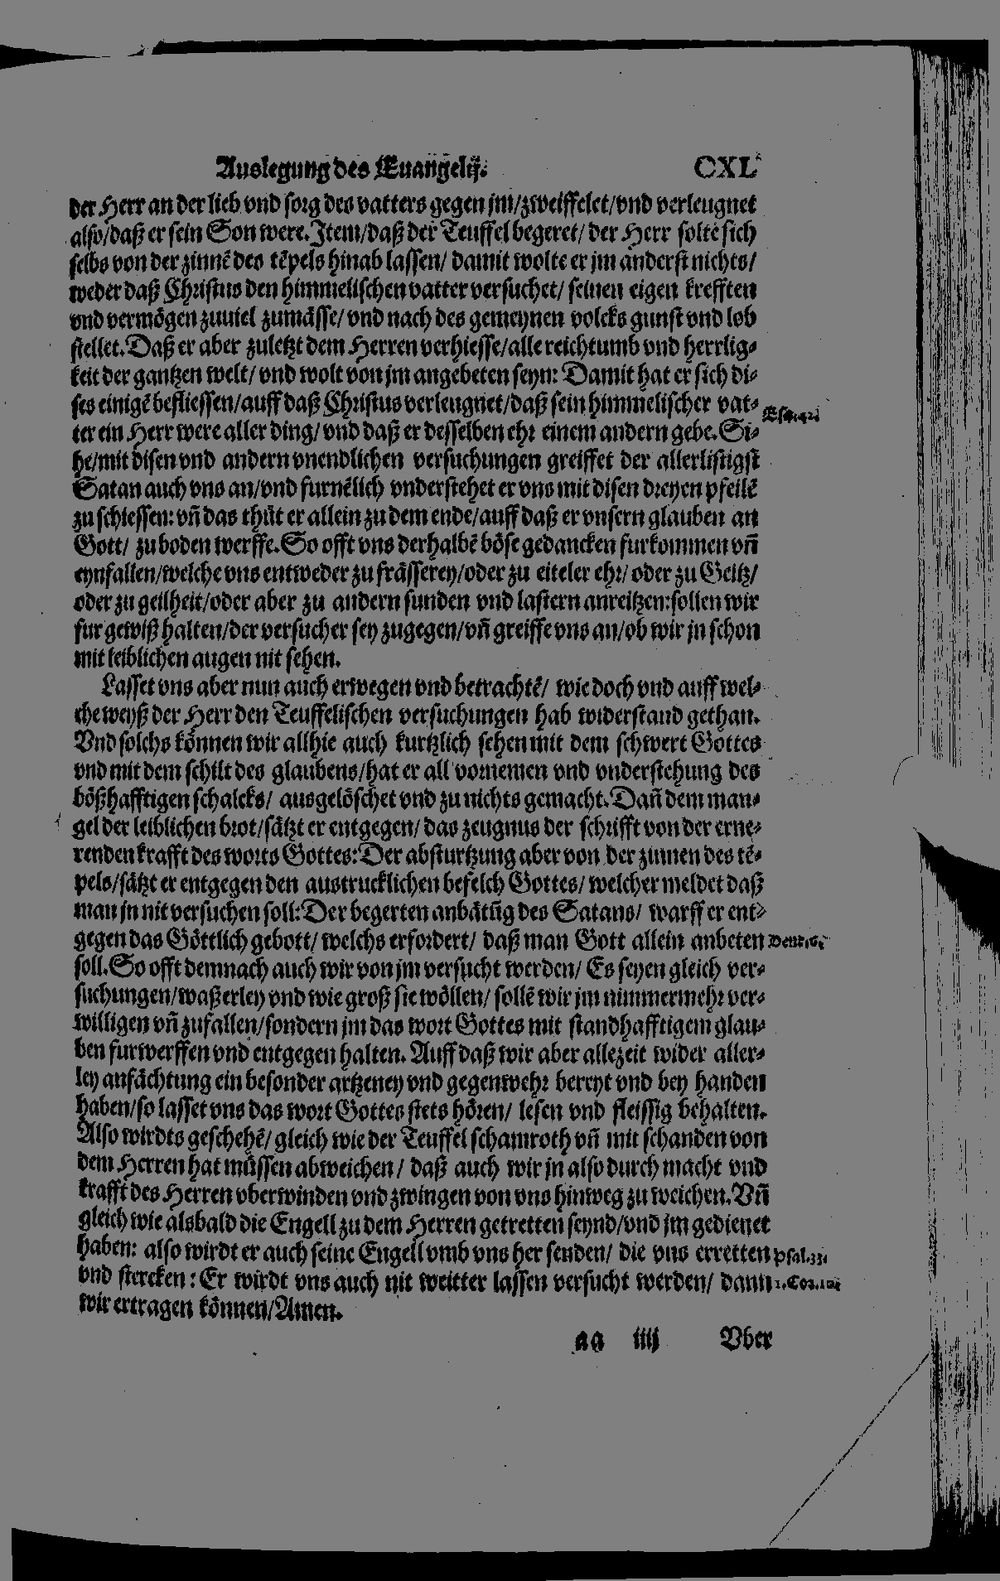 Auslegung des Euangelij. CXL
der Herr an der lieb vnd sorg des vatters gegen jm/zweiffelet/vnd verleugnet
also/daß er sein Son were. Item/daß der Teuffel begeret/ der Herr solte sich
selbs von der zinnē des tēpels hinab lassen/ damit wolte er jm anderst nichts/
weder daß Christus den himmelischen vatter versuchet/ seinen eigen krefften
vnd vermögen zuuiel zumässe/ vnd nach des gemeynen volcks gunst vnd lob
stellet. Daß er aber zuletzt dem Herren verhiesse/alle reichtumb vnd herrlig-
keit der gantzen welt/ vnd wolt von jm angebeten seyn: Damit hat er sich di-
ses einigē befliessen/auff daß Christus verleugnet/daß sein himmelischer vat-
ter ein Herr were aller ding/ vnd daß er desselben ehr einem andern gebe. Si-
he/mit disen vnd andern vnendlichen versuchungen greiffet der allerlistigst
Satan auch vns an/vnd furnēlich vnderstehet er vns mit disen dreyen pfeilē
zu schiessen: vñ das thůt er allein zu dem ende/auff daß er vnsern glauben an
Gott/ zu boden werffe. So offt vns derhalbē böse gedancken furkommen vñ
eynfallen/welche vns entweder zu frässerey/oder zu eiteler ehr/ oder zu Geitz/
oder zu geilheit/oder aber zu andern sunden vnd lastern anreitzen: sollen wir
fur gewiß halten/der versucher sey zugegen/vñ greiffe vns an/ob wir jn schon
mit leiblichen augen nit sehen.
Lasset vns aber nun auch erwegen vnd betrachtē/ wie doch vnd auff wel-
che weyß der Herr den Teuffelischen versuchungen hab widerstand gethan.
Vnd solchs können wir allhie auch kurtzlich sehen mit dem schwert Gottes
vnd mit dem schilt des glaubens/hat er all vornemen vnd vnderstehung des
bößhafftigen schalcks/ ausgelöschet vnd zu nichts gemacht. Dañ dem man-
gel der leiblichen brot/sätzt er entgegen/ das zeugnus der schrifft von der erne-
renden krafft des worts Gottes: Der absturtzung aber von der zinnen des tē-
pels/sätzt er entgegen den austrucklichen befelch Gottes/ welcher meldet daß
man jn nit versuchen soll: Der begerten anbätūg des Satans/ warff er ent-
gegen das Göttlich gebott/ welchs erfordert/ daß man Gott allein anbeten
soll. So offt demnach auch wir von jm versucht werden/ Es seyen gleich ver-
suchungen/waßerley vnd wie groß sie wöllen/ sollē wir jm nimmermehr ver-
willigen vñ zufallen/sondern jm das wort Gottes mit standhafftigem glau-
ben furwerffen vnd entgegen halten. Auff daß wir aber allezeit wider aller-
ley anfächtung ein besonder artzeney vnd gegenwehr bereyt vnd bey handen
haben/so lasset vns das wort Gottes stets hören/ lesen vnd fleissig behalten.
Also wirdts geschehē/gleich wie der Teuffel schamroth vñ mit schanden von
dem Herren hat müssen abweichen/ daß auch wir jn also durch macht vnd
krafft des Herren vberwinden vnd zwingen von vns hinweg zu weichen. Vñ
gleich wie alsbald die Engell zu dem Herren getretten seynd/vnd jm gedienet
haben: also wirdt er auch seine Engell vmb vns her senden/ die vns erretten
vnd stercken: Er wirdt vns auch nit weitter lassen versucht werden/ dann
wir ertragen können/Amen.
aa iiij Vber
Deut.6.
Psal.33.
1.Cor.10.